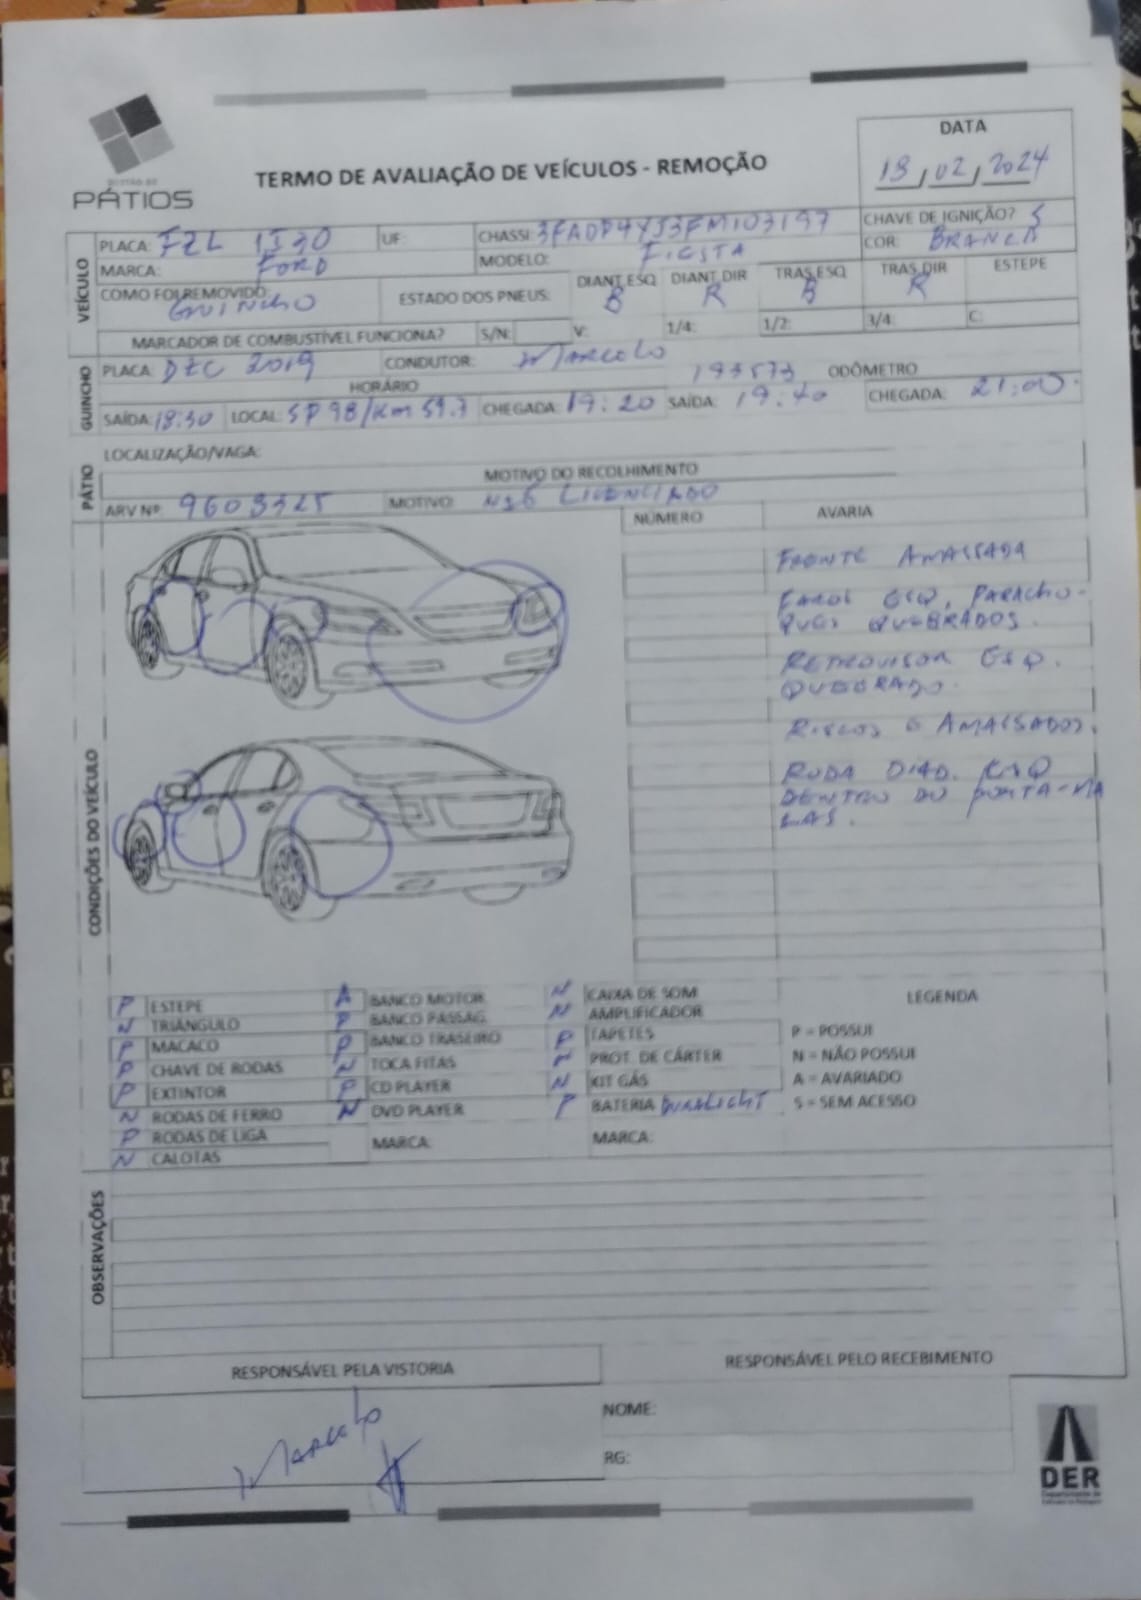 DATA
18/02/2024
GESTÃO DE
PÁTIOS
TERMO DE AVALIAÇÃO DE VEÍCULOS - REMOÇÃO
VEÍCULO
PLACA: FZL 1J30 UF: CHASSI: 3FADP4YJ3FM103197 CHAVE DE IGNIÇÃO? S
MARCA: FORD MODELO: FIESTA COR: BRANCA
COMO FOI REMOVIDO: GUINCHO ESTADO DOS PNEUS: DIANT.ESQ B DIANT.DIR R TRAS.ESQ B TRAS.DIR R ESTEPE
MARCADOR DE COMBUSTÍVEL FUNCIONA? S/N: V: 1/4: 1/2: 3/4: C:
GUINCHO
PLACA: DZC 2019 CONDUTOR: MARCELO
HORÁRIO 193573 ODÔMETRO
SAÍDA: 18:30 LOCAL: SP 98/KM 59.7 CHEGADA: 19:20 SAÍDA: 19:40 CHEGADA: 21:00
PÁTIO
LOCALIZAÇÃO/VAGA:
MOTIVO DO RECOLHIMENTO
ARV Nº: 9603325 MOTIVO: NÃO LICENCIADO
CONDIÇÕES DO VEÍCULO
NÚMERO AVARIA
FRONTE AMASSADA
FAROL ESQ, PARACHO-
QUES QUEBRADOS.
RETROVISOR ESQ.
QUEBRADO.
RISCOS E AMASSADOS.
RODA DIAD. ESQ
DENTRO DO PORTA-MA
LAS.
P ESTEPE A BANCO MOTOR N CAIXA DE SOM LEGENDA
N TRIÂNGULO P BANCO PASSAG. N AMPLIFICADOR
P MACACO P BANCO TRASEIRO P TAPETES P = POSSUI
P CHAVE DE RODAS N TOCA FITAS N PROT. DE CÁRTER N = NÃO POSSUI
P EXTINTOR P CD PLAYER N KIT GÁS A = AVARIADO
N RODAS DE FERRO N DVD PLAYER P BATERIA DURALIGHT S = SEM ACESSO
P RODAS DE LIGA MARCA: MARCA:
N CALOTAS
OBSERVAÇÕES
RESPONSÁVEL PELA VISTORIA RESPONSÁVEL PELO RECEBIMENTO
MARCELO
NOME:
RG:
DER